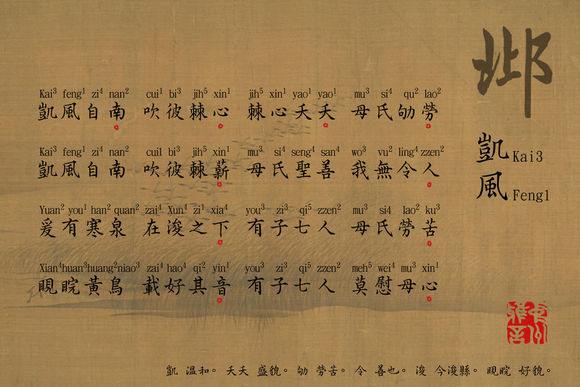 邶
凱 Kai3
風 Feng1
Kai³ feng¹ zi⁴ nan² cui¹ bi³ jih⁵ xin¹ jih⁵ xin¹ yao¹ yao¹ mu³ si⁴ qu² lao²
凱風自南 吹彼棘心 棘心夭夭 母氏劬勞
Kai³ feng¹ zi⁴ nan² cui1 bi³ jih⁵ xin¹ mu³ si⁴ seng⁴ san⁴ wo³ vu² ling⁴ zzen²
凱風自南 吹彼棘薪 母氏聖善 我無令人
Yuan² you³ han² quan² zai⁴ Xun⁴ zi¹ xia⁴ you³ zi³ qi⁵ zzen² mu³ si⁴ lao² ku³
爰有寒泉 在浚之下 有子七人 母氏勞苦
Xian⁴ huan³ huang² niao³ zai⁴ hao⁴ qi² yin¹ you³ zi³ qi⁵ zzen² meh⁵ wei⁴ mu³ xin¹
睍睆黃鳥 載好其音 有子七人 莫慰母心
凱 溫和。夭夭 盛貌。劬 勞苦。令 善也。浚 今浚縣。睍睆 好貌。